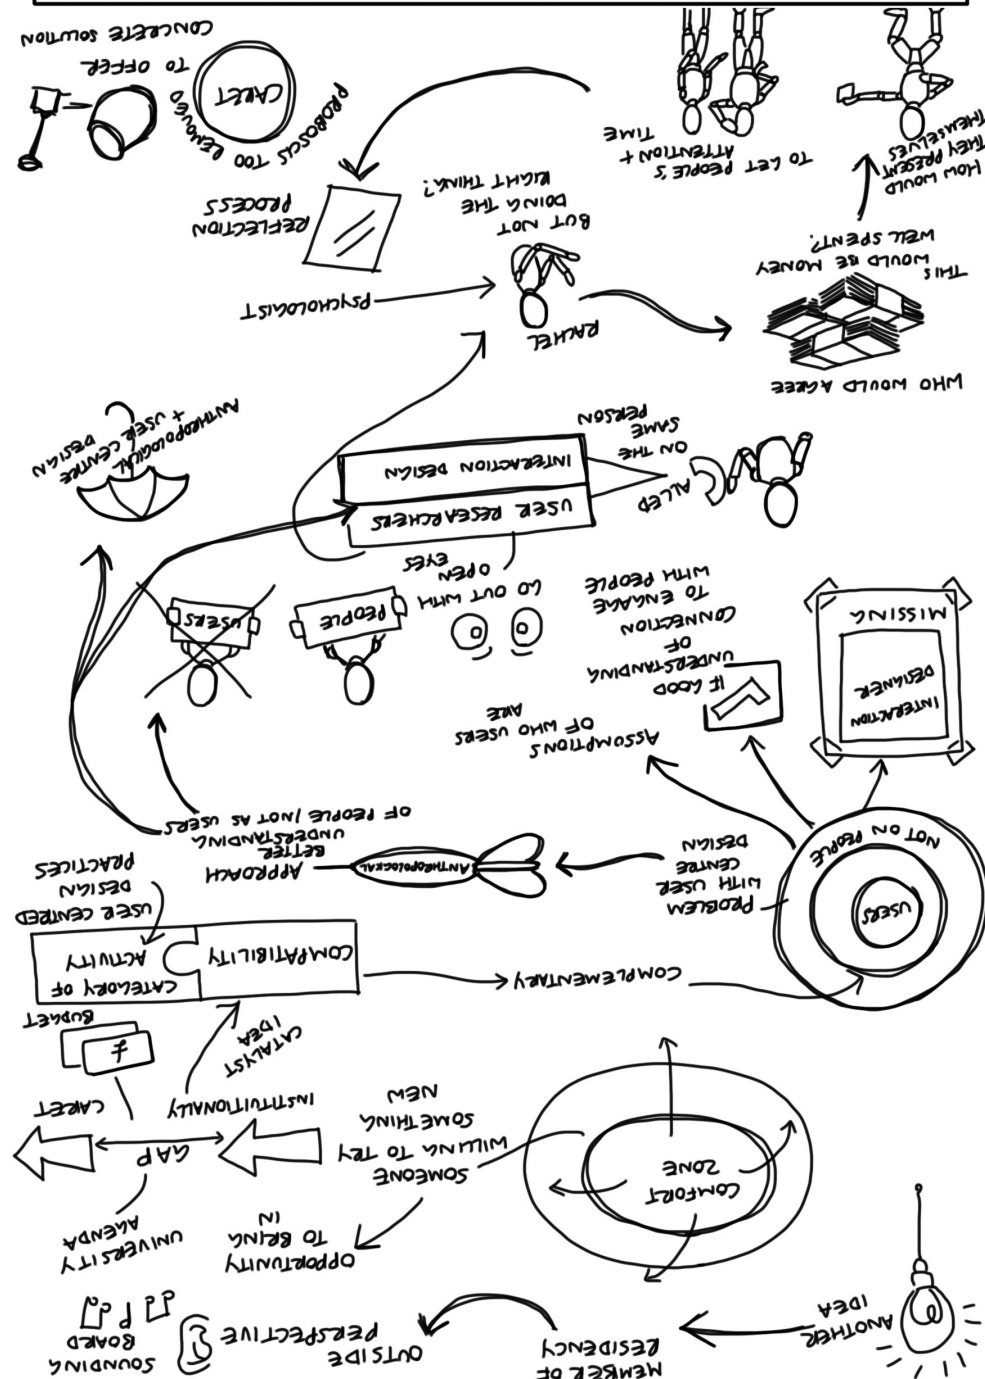 ANOTHER
IDEA
MEMBER OF
RESIDENCY
OUTSIDE
PERSPECTIVE
SOUNDING
BOARD
COMFORT
ZONE
SOMEONE
WILLING TO TRY
SOMETHING
NEW
OPPORTUNITY
TO BRING
IN
UNIVERSITY
AGENDA
GAP
INSTITUTIONALLY
CARET
£
BUDGET
CATALYST
IDEA
COMPATIBILITY
CATEGORY OF
ACTIVITY
USER CENTRED
DESIGN
PRACTICES
COMPLEMENTARY
USERS
NOT ON PEOPLE
PROBLEM
WITH USER
CENTRE
DESIGN
ANTHROPOLOGICAL
APPROACH
BETTER
UNDERSTANDING
OF PEOPLE / NOT AS USERS
MISSING
INTERACTION
DESIGNER
IF GOOD
UNDERSTANDING
OF
CONNECTION
TO ENGAGE
WITH PEOPLE
ASSUMPTIONS
OF WHO USERS
ARE
PEOPLE
USERS
GO OUT WITH
OPEN
EYES
USER RESEARCHERS
INTERACTION DESIGN
ALLED
ON THE
SAME
PERSON
ANTHROPOLOGICAL
+ USER CENTRE
DESIGN
WHO WOULD AGREE
THIS
WOULD BE MONEY
WELL SPENT?
RACHEL
PSYCHOLOGIST
BUT NOT
DOING THE
RIGHT THING?
REFLECTION
PROCESS
HOW WOULD
THEY PRESENT
THEMSELVES
TO GET PEOPLE'S
ATTENTION +
TIME
PROBOSCIS TOO REMOVED
CARET
TO OFFER
CONCRETE SOLUTION